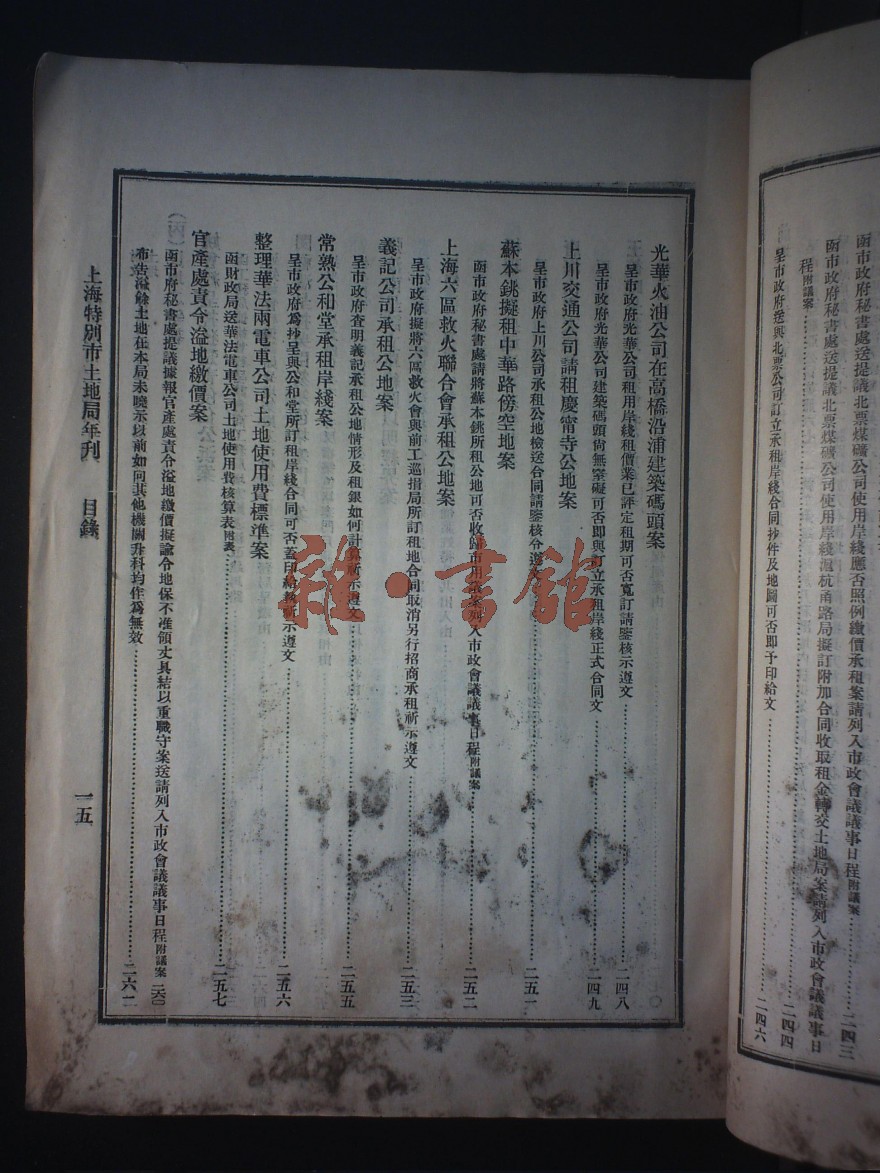 函市政府秘書處送提議北票煤礦公司使用岸綫應否照例繳價承租案請列入市政會議議事日程附議案……二四三
函市政府秘書處送提議北票煤礦公司使用岸綫滬杭甬路局擬訂附加合同收取租金轉交土地局案請列入市政會議議事日
程附議案……二四四
呈市政府送與北票公司訂立承租岸綫合同抄件及地圖可否即予印給文……二四六
光華火油公司在高橋沿浦建築碼頭案
呈市政府光華公司租用岸綫租價業已評定租期可否寬訂請鑒核示遵文……二四八
呈市政府光華公司建築碼頭尚無窒礙可否即與訂立承租岸綫正式合同文……二四九
上川交通公司請租慶甯寺公地案
呈市政府上川公司承租公地檢送合同請鑒核令遵文……二五一
蘇本銚擬租中華路傍空地案
函市政府秘書處請將蘇本銚所租公地可否收歸市用案列入市政會議議事日程附議案……二五二
上海六區救火聯合會承租公地案
呈市政府擬將六區救火會與前工巡捐局所訂租地合同取消另行招商承租祈示遵文……二五三
義記公司承租公地案
呈市政府查明義記承租公地情形及租銀如何計算祈示遵文……二五五
常熟公和堂承租岸綫案
呈市政府爲抄呈與公和堂所訂租岸綫合同可否蓋印給執祈示遵文……二五六
整理華法兩電車公司土地使用費標準案
函財政局送華法電車公司土地使用費核算表附表……二五七
官產處責令溢地繳價案
函市府秘書處提議據報官產處責令溢地繳價擬諭令地保不准領丈具結以重職守案送請列入市政會議議事日程附議案 二六〇
布告溢餘土地在本局未曉示以前如向其他機關升科均作爲無效……二六二
上海特別市土地局年刊 目錄 一五
雜·書館